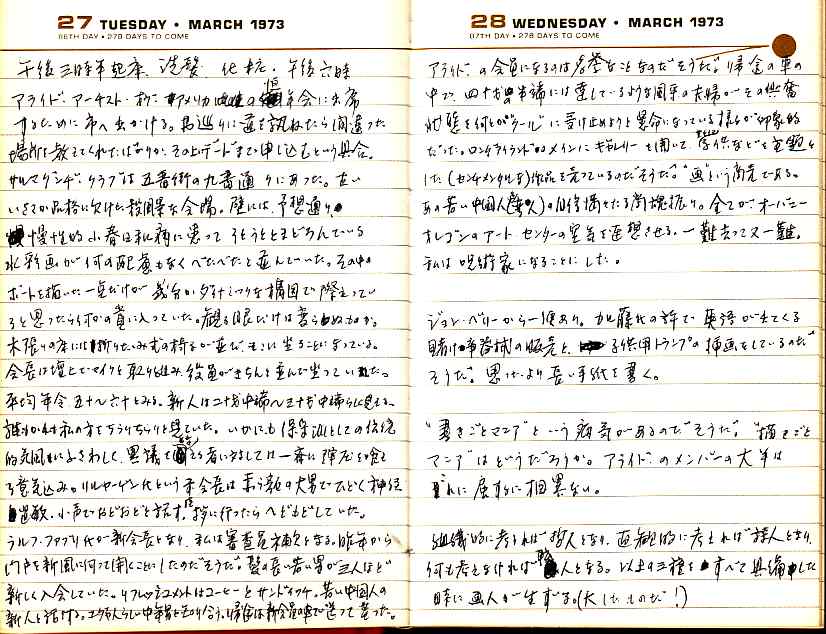 27 TUESDAY • MARCH 1973
86TH DAY • 279 DAYS TO COME
午後三時半起床、洗髪、化粧、午後六時
アライド・アーチスト・オブ・アメリカの年会に出席
するために市へ出かける。お巡りに道を訊ねたら間違った
場所を教えてくれたばかりか、その上デートまで申し込むという具合。
サルマグンジ・クラブは五番街の九番通りにあった。古い
いささか品格に欠けた殺風景な会場。壁には、予想通り、
慢性的小春日和病に患って
水彩画が何の配慮もなくべたべたと並んでいた。その中
ボートを描いた一点だけが幾分かダイナミックな構図で際立ってい
ると思ったら何かの賞に入っていた。観る眼だけは変らぬものか。
木張りの床には折りたたみ式の椅子が並び、そこに坐ることになっている。
会長は壇上でマイクを取り組み、役員がきちんと並んで坐っていた。
平均年令五十〜六十とみる。新人は二十才中端〜三十才中端らしく見える。
誰もかれも私の方をじろりじろりと見ていた。いかにも保守派としての伝統
的気風にふさわしく、異議を 者に対しては一斉に陣を
る意気込み。 という 会長は 大男でひどく神経
過敏、小声でおどおどと話す。挨拶に行ったらへどもどしていた。
ラルフ・ファブリ氏が新会長となり、私は審査員補欠となる。昨年から
門戸を新風に向って開くことにしたのだそうだ。髪の長い若い男が三人ほど
新しく入会していた。リフレッシュメントはコーヒーとサンドイッチ。若い中国人の
新人と話す。 帰途は新会員の車で送って貰った。
28 WEDNESDAY • MARCH 1973
87TH DAY • 278 DAYS TO COME
アライドの会員になるのは名誉なことなのだそうだ。帰途の車の
中で、四十才の中端には達しているような同年の夫婦がその興奮
状態を何とか"クール"に受け止めようと懸命になっている様子が印象的
だった。ロングアイランドのメインにギャラリーを開いて、 などを主題と
した(センチメンタルな)作品を売っているのだそうだ。"画"という商売である。
あの若い中国人(美人)の自信満々たる 振り。全てが、オーバニー
オレゴンのアートセンターの空気を連想させる。一難去って又一難。
私は呪術家になることにした。
ジョン・ベリーから一便あり。加藤氏の許で英語が出てくる
賭け事器械の販売と、子供用トランプの挿画をしているのだ
そうだ。思ったより長い手紙を書く。
"書きごとマニア"という病気があるのだそうだ。"描きごと
マニア"はどうだろうか。アライドのメンバーの大半は
これに属すに相異ない。
組織的に考えれば哲人となり、直観的に考えれば詩人となり、
何も考えなければ 人となる。以上の三種をすべて具備した
時に画人が生ずる。(大したものだ!)